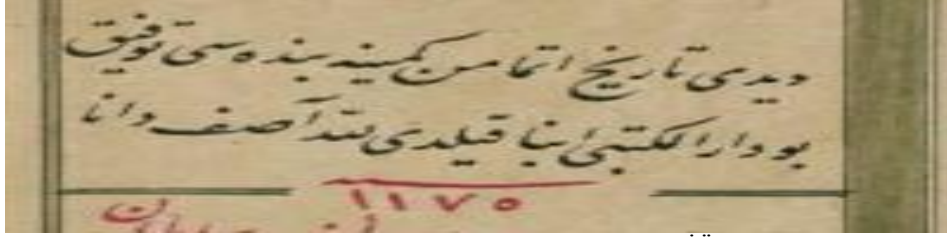 دیدی تاریخ اتمامن کمینه بنده سی توفیق
بو دار الکتبی ابنا قیلدی لله آصف دانا
١١٧٥